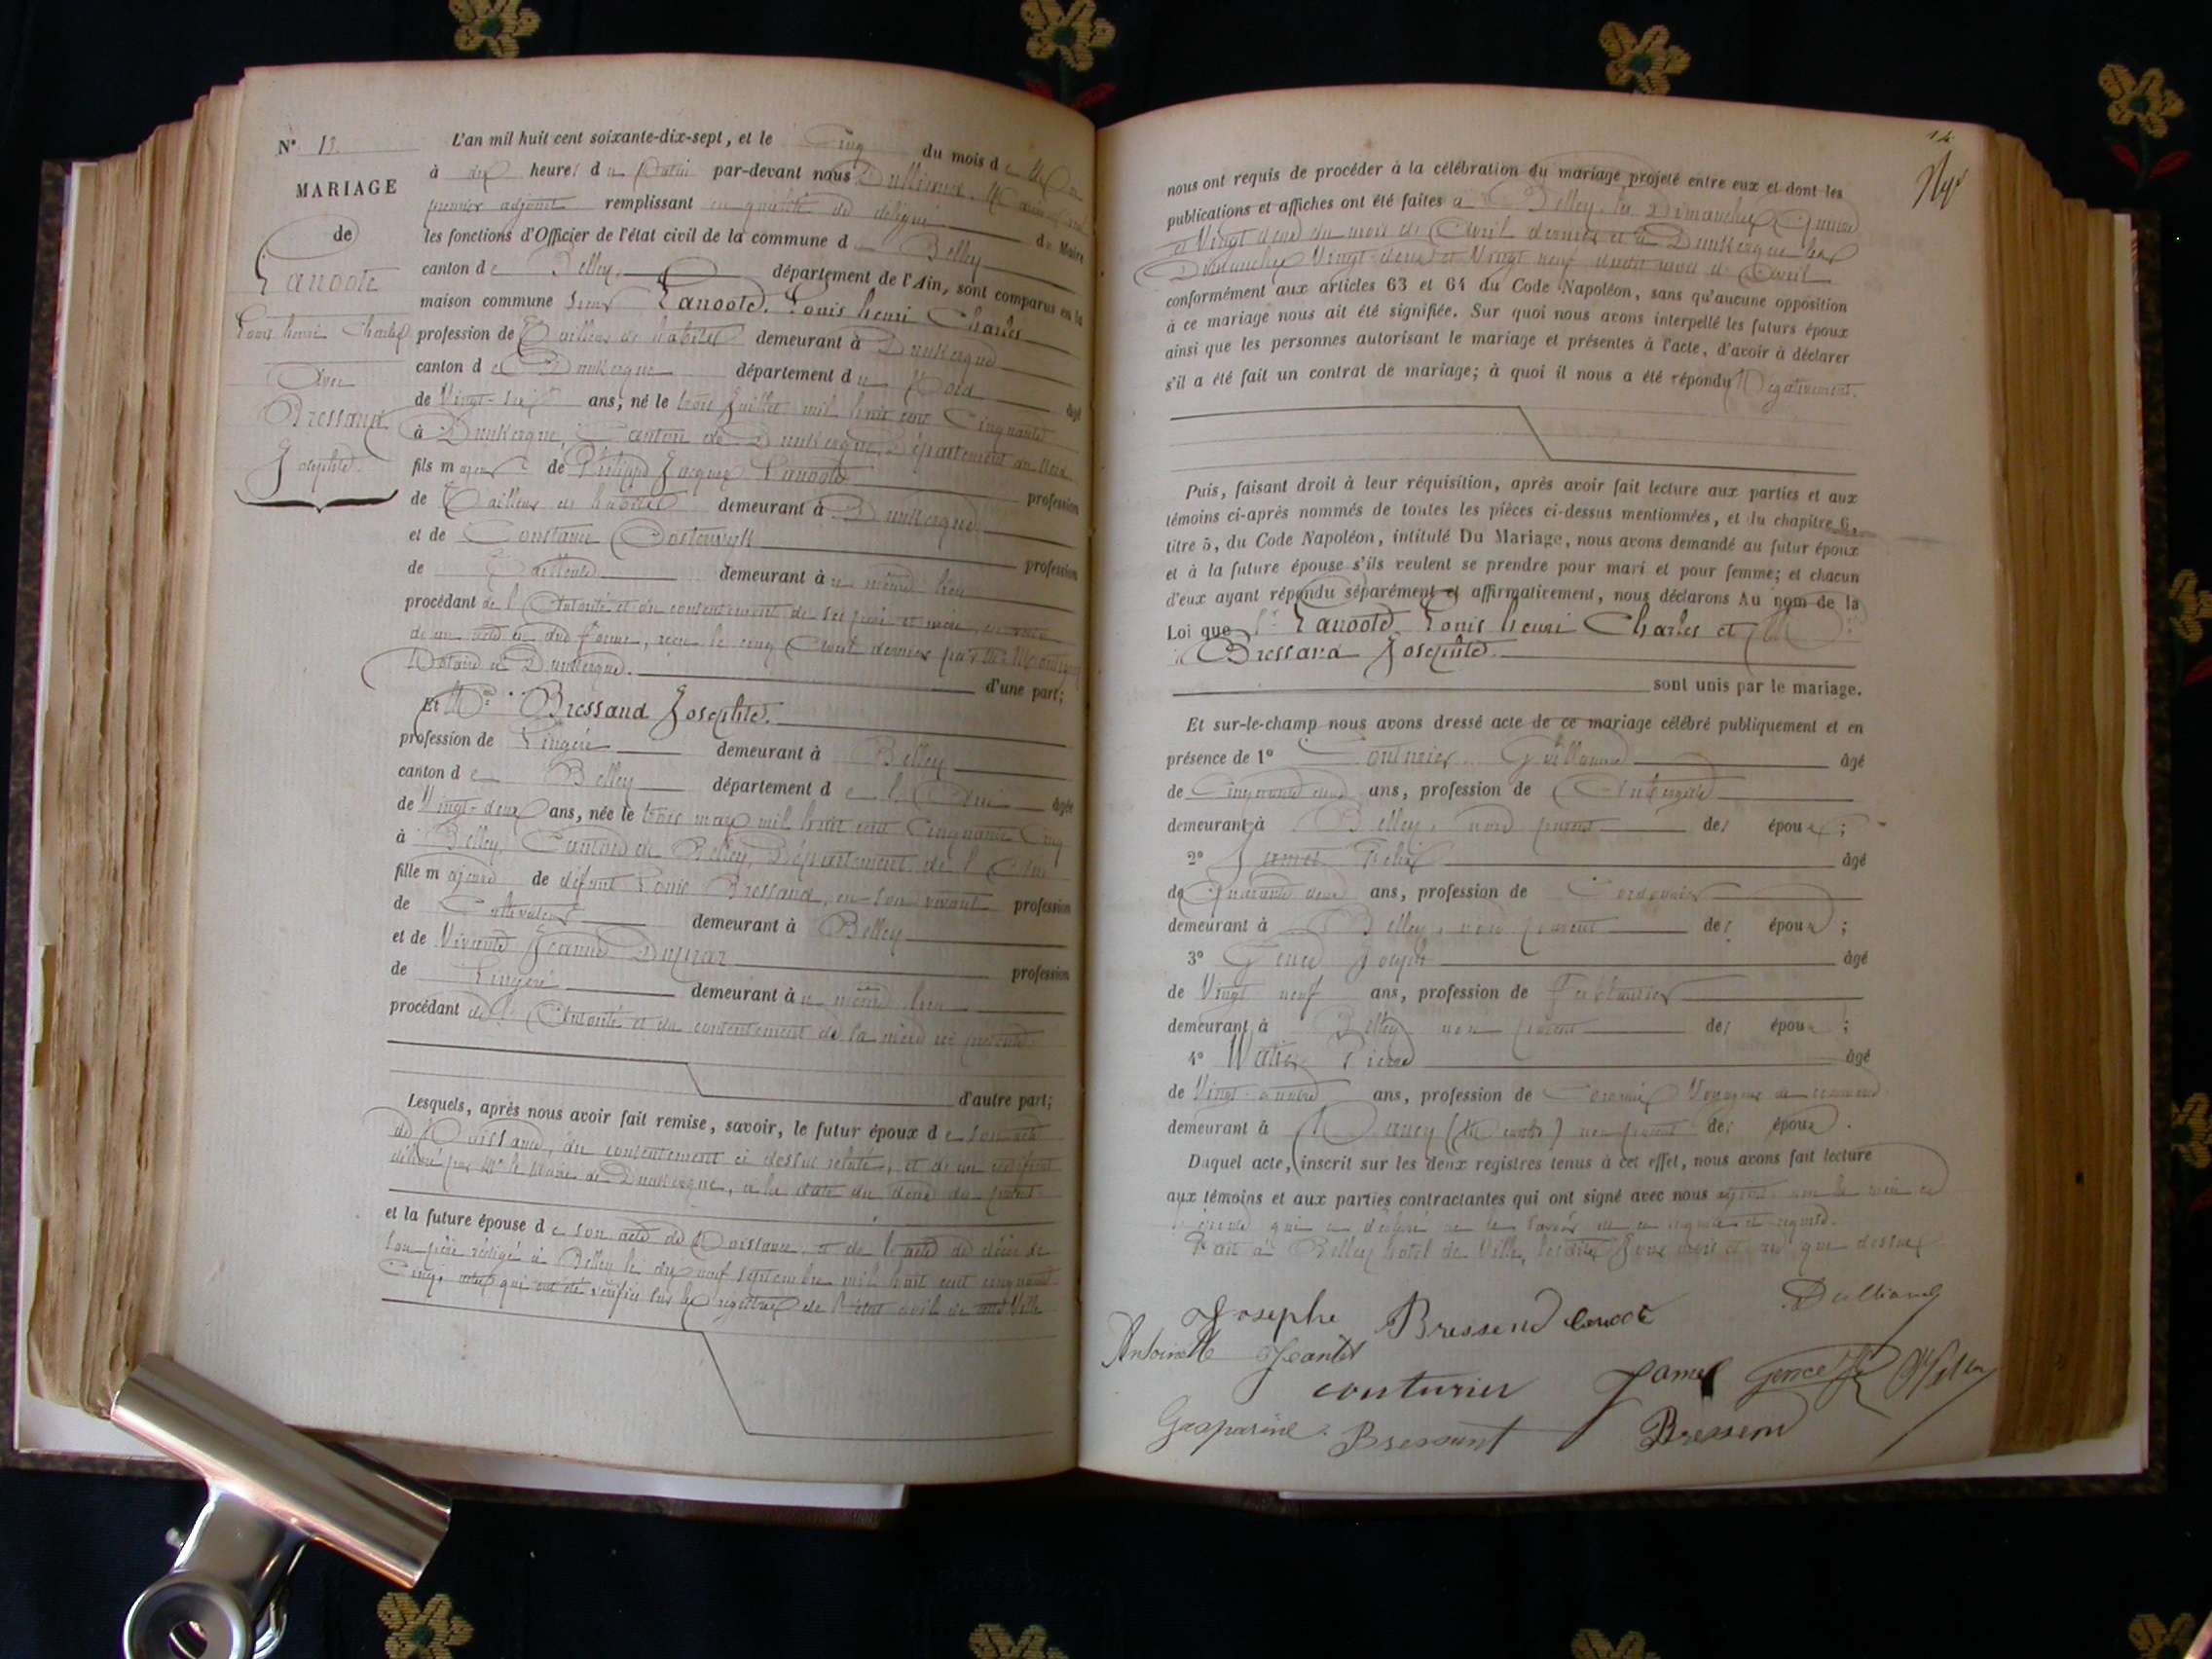 N° 13.
MARIAGE
de
Lanoote
Louis henri Charles
Avec
Bressand
Josephte.
L'an mil huit cent soixante-dix-sept, et le Cinq du mois de Mai
à dix heures du Matin par-devant nous
premier adjoint remplissant en qualité de délégué du Maire
les fonctions d'Officier de l'état civil de la commune de Belley
canton de Belley, département de l'Ain, sont comparus en la
maison commune Sieur Lanoote, Louis henri Charles
profession de Tailleur de habits demeurant à Dunkerque
canton de Dunkerque département du Nord âgé
de Vingt-six ans, né le trois Juillet mil huit cent Cinquante
à Dunkerque, Canton de Dunkerque, Département du Nord
fils majeur de Philippe Jacques Lanoote profession
de Tailleur de habits demeurant à Dunkerque
et de Constance profession
de demeurant à u même lieu
procédant de l'Autorité et du consentement de ses père et mère, en vertu
de un acte en due forme, reçu le cinq Août dernier par Me
Notaire à Dunkerque. d'une part;
Et Mlle Bressand Josephte.
profession de Lingère demeurant à Belley
canton de Belley département de l'Ain âgée
de Vingt-deux ans, née le trois mai mil huit cent Cinquante Cinq
à Belley, Canton de Belley, Département de l'Ain
fille majeure de défunt Louis Bressand, en son vivant profession
de Cultivateur demeurant à Belley
et de Vivante Jeanne profession
de Lingère demeurant à u même lieu
procédant de l'Autorité et du consentement de sa mère ici présente
d'autre part;
Lesquels, après nous avoir fait remise, savoir, le futur époux de son acte
de Naissance, du consentement ci dessus relaté, et de un certificat
délivré par Mr le Maire de Dunkerque, à la date du deux du
et la future épouse de son acte de Naissance, et de l'acte de décès de
son père rédigé à Belley le dix neuf septembre mil huit cent cinquante
Cinq, actes qui ont été vérifiés sur les registres de l'état civil de cette Ville
14
nous ont requis de procéder à la célébration du mariage projeté entre eux et dont les
publications et affiches ont été faites à Belley, les Dimanches Quinze
et Vingt deux du mois de Avril dernier et à Dunkerque les
Dimanches Vingt-deux et Vingt neuf dudit mois d'Avril
conformément aux articles 63 et 64 du Code Napoléon, sans qu'aucune opposition
à ce mariage nous ait été signifiée. Sur quoi nous avons interpellé les futurs époux
ainsi que les personnes autorisant le mariage et présentes à l'acte, d'avoir à déclarer
s'il a été fait un contrat de mariage; à quoi il nous a été répondu Négativement.
Puis, faisant droit à leur réquisition, après avoir fait lecture aux parties et aux
témoins ci-après nommés de toutes les pièces ci-dessus mentionnées, et du chapitre 6,
titre 5, du Code Napoléon, intitulé Du Mariage, nous avons demandé au futur époux
et à la future épouse s'ils veulent se prendre pour mari et pour femme; et chacun
d'eux ayant répondu séparément et affirmativement, nous déclarons Au nom de la
Loi que Sr Lanoote Louis henri Charles et Mlle
Bressand Josephte.
sont unis par le mariage.
Et sur-le-champ nous avons dressé acte de ce mariage célébré publiquement et en
présence de 1° Couturier Guillaume âgé
de Cinquante deux ans, profession de Aubergiste
demeurant à Belley, non parent des époux;
2° James Félix âgé
de Quarante deux ans, profession de Cordonnier
demeurant à Belley, non parent des époux;
3° Gence Joseph âgé
de Vingt neuf ans, profession de Ferblantier
demeurant à Belley non parent des époux;
4° Pierre âgé
de Vingt quatre ans, profession de Commis Voyageur
demeurant à Nancy (Meurthe) non parent des époux.
Duquel acte, inscrit sur les deux registres tenus à cet effet, nous avons fait lecture
aux témoins et aux parties contractantes qui ont signé avec nous non la mère de
l'épouse qui a déclaré ne le savoir de ce enquise et requise.
Fait à Belley hotel de Ville, lesdits Jour mois et an que dessus
Josephe Bressend Lanoote Dullianel
Antoinette Jeantet
couturier James Gence
Gasparine Bressant Bressend